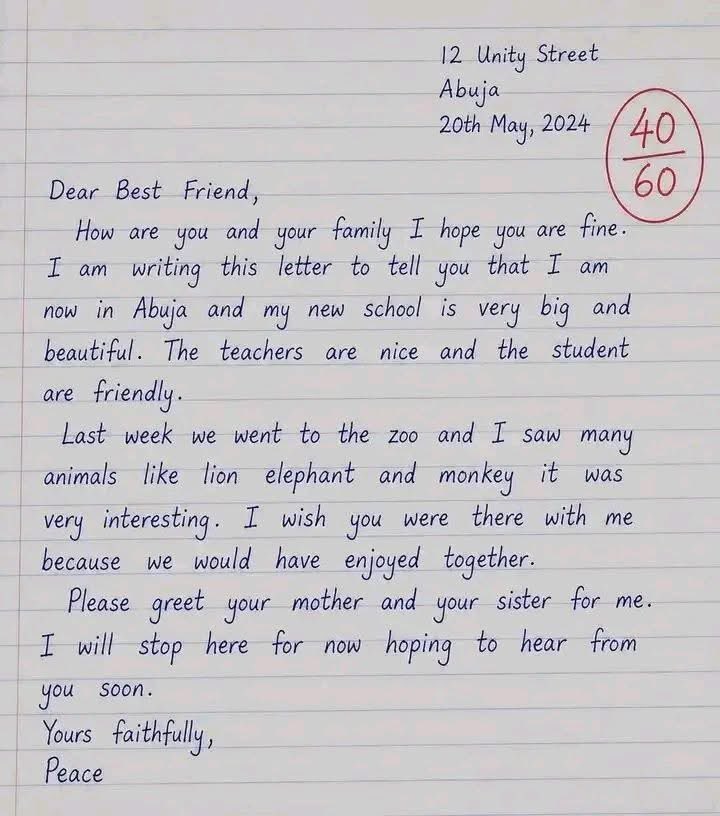 12 Unity Street
Abuja
20th May, 2024
40
60
Dear Best Friend,
How are you and your family I hope you are fine.
I am writing this letter to tell you that I am
now in Abuja and my new school is very big and
beautiful. The teachers are nice and the student
are friendly.
Last week we went to the zoo and I saw many
animals like lion elephant and monkey it was
very interesting. I wish you were there with me
because we would have enjoyed together.
Please greet your mother and your sister for me.
I will stop here for now hoping to hear from
you soon.
Yours faithfully,
Peace